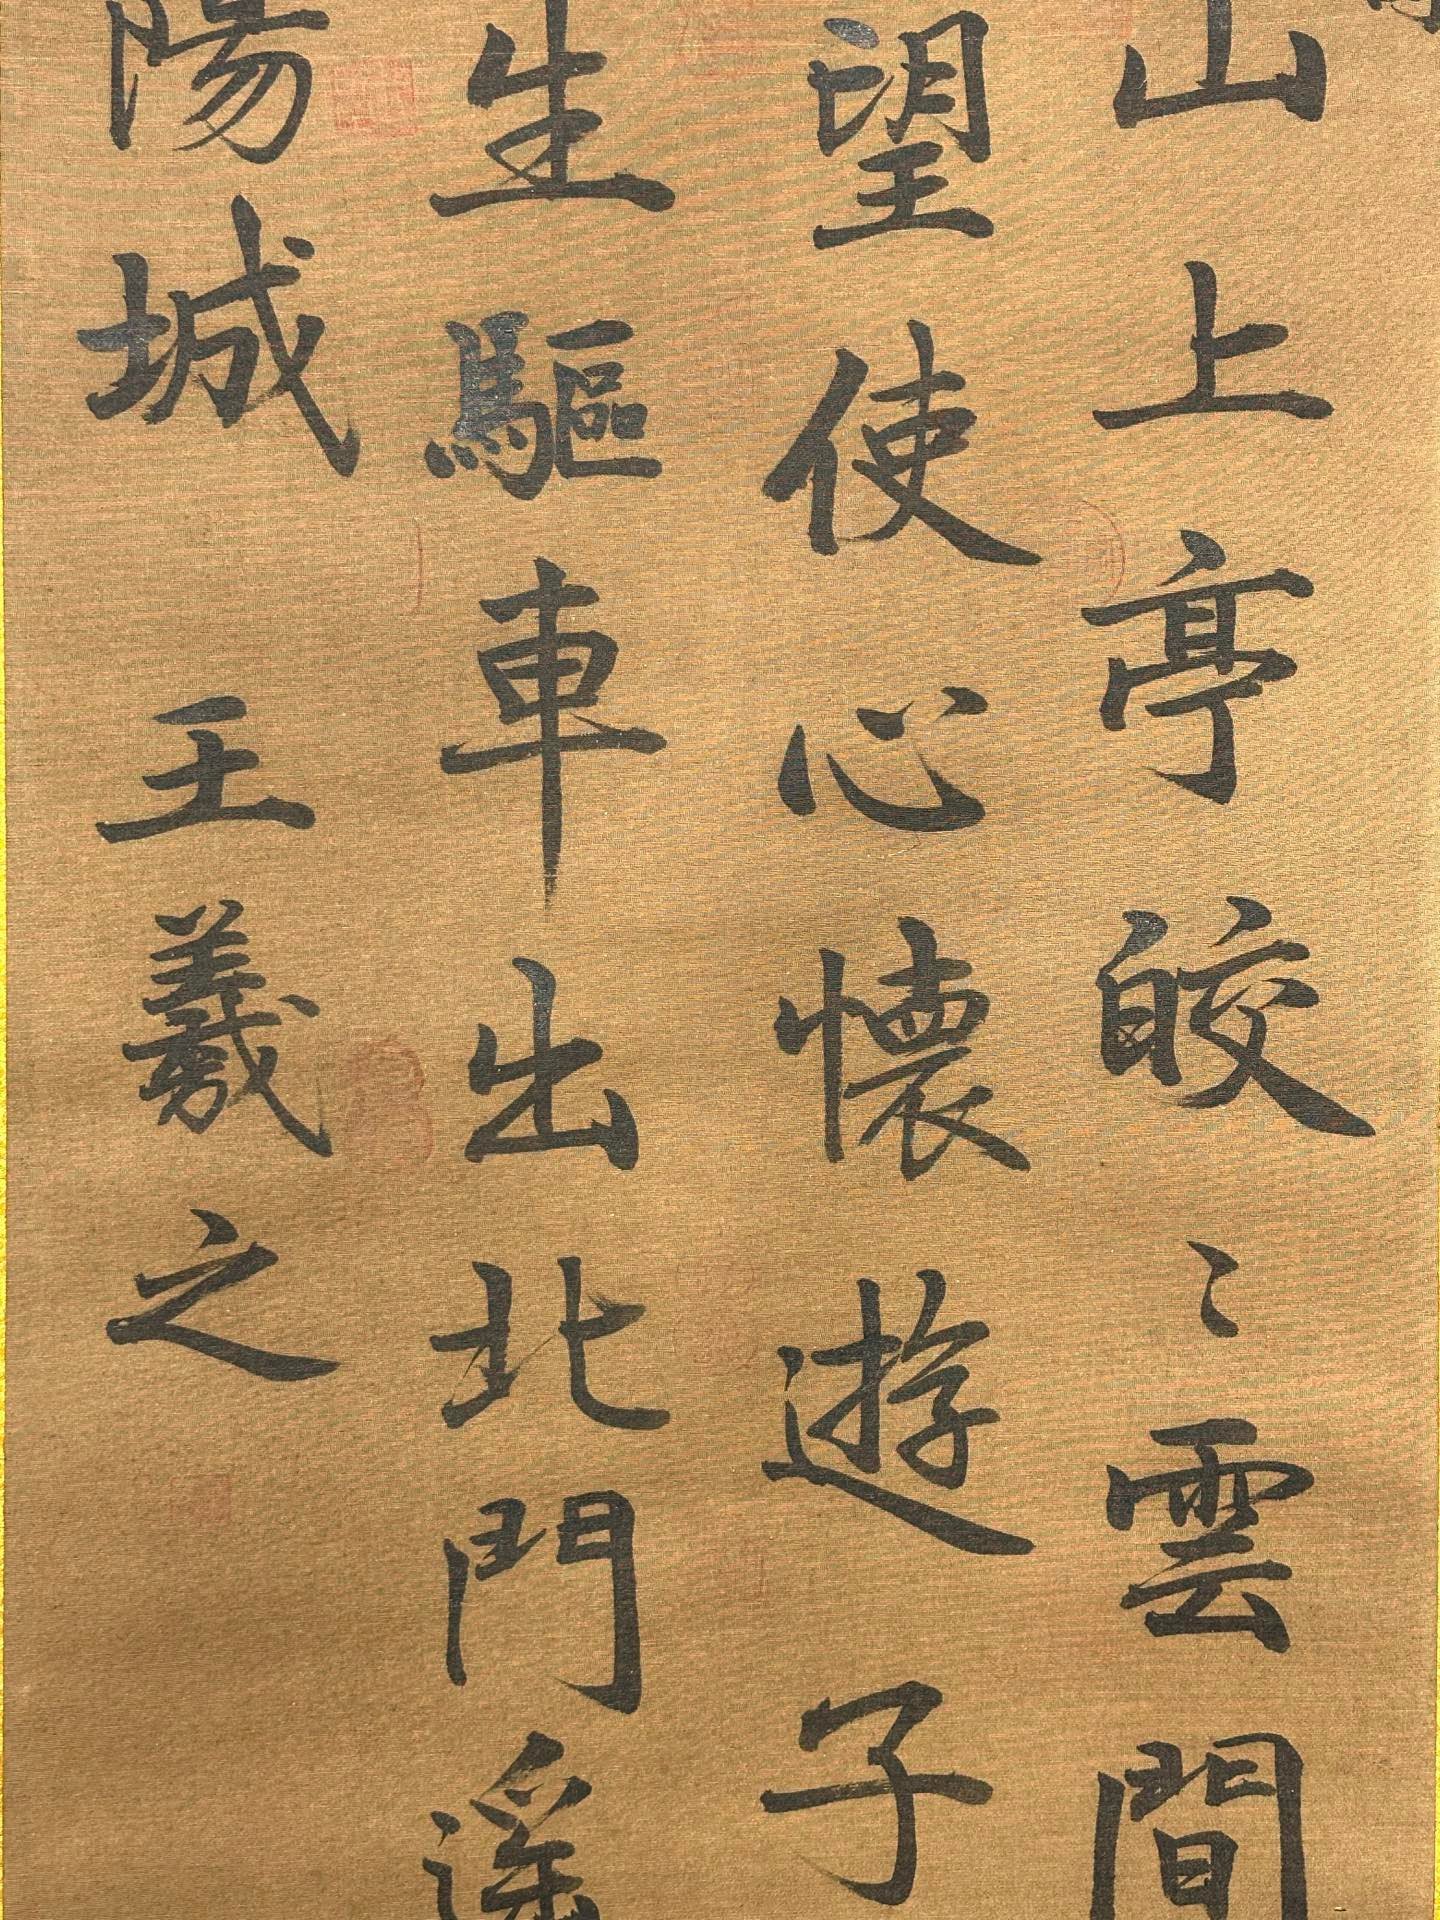 山上亭皎〻雲間
望使心懷遊子
生驅車出北門遥
陽城
王羲之